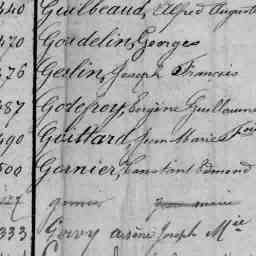 440 Guilbeaud, Alfred Auguste
470 Goudelin, Georges
476 Geslin, Joseph François
487 Godefroy, Eugène Guillaume
490 Guittard, Jean Marie
500 Garnier, Constant Edmond
333 Gervy Arsène Joseph Mie